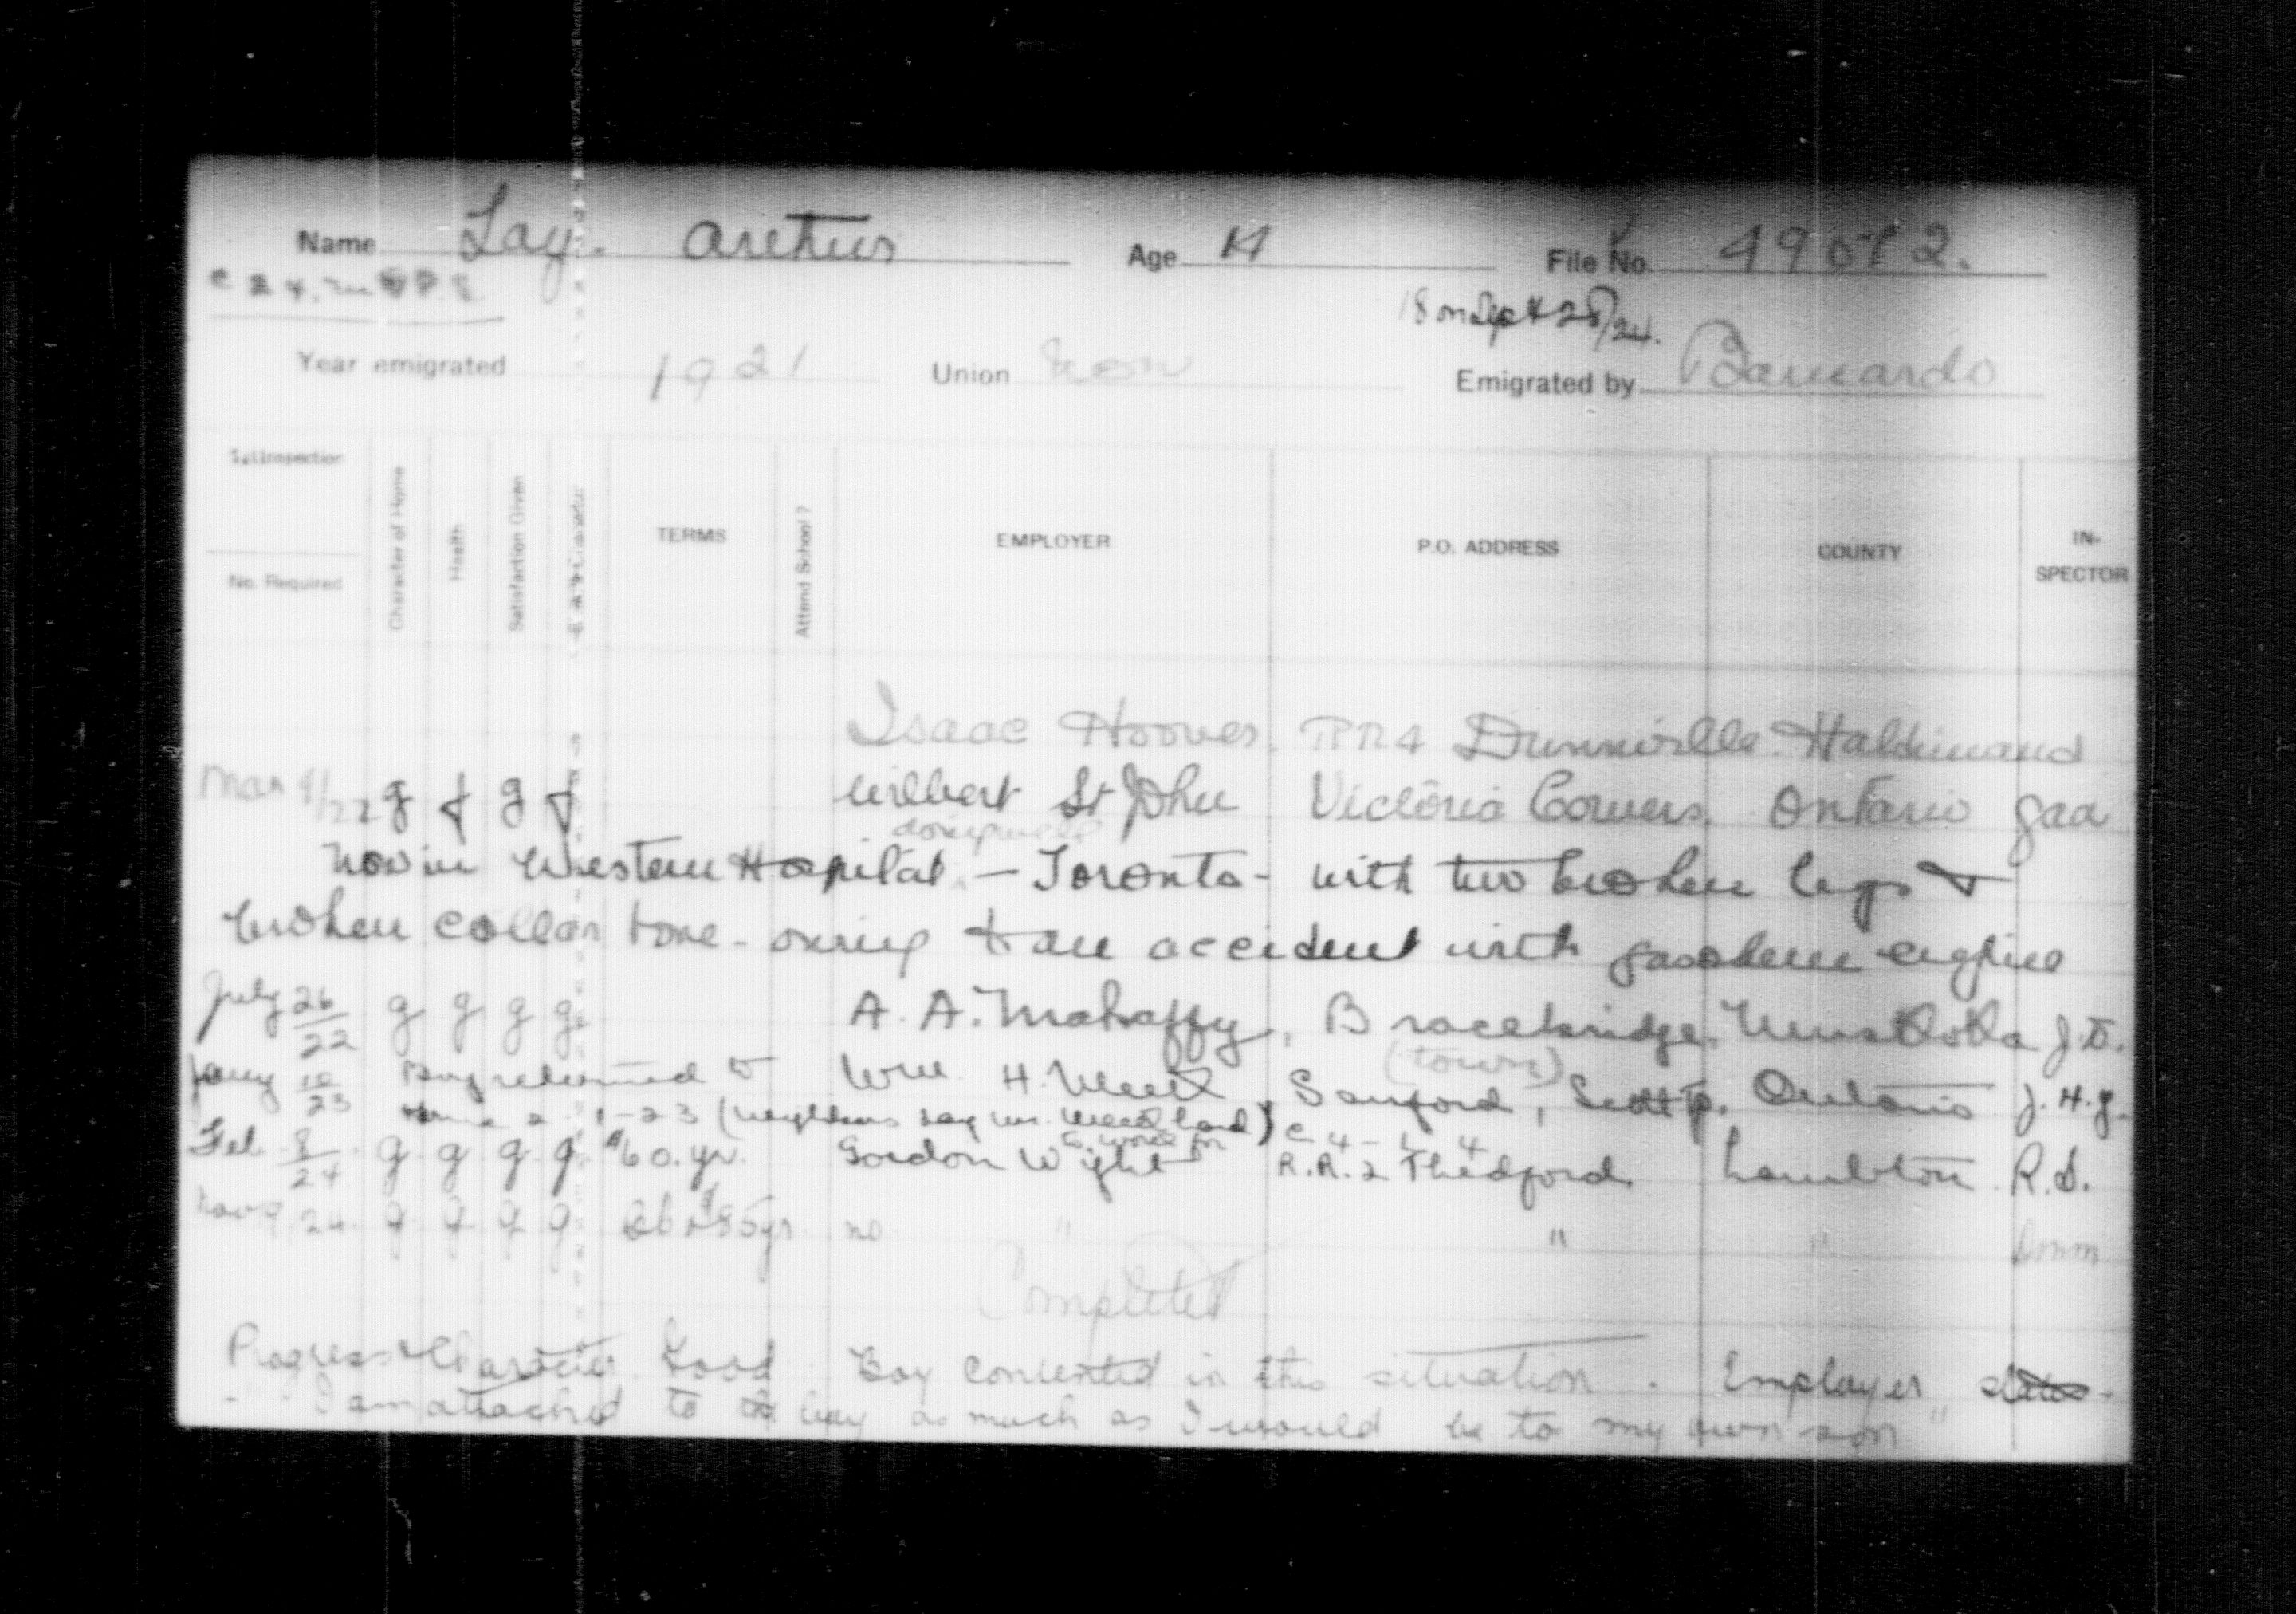 Name Lay. Arthur Age 14 File No. 49072.
18 on Sept 28/24.
Year emigrated 1921 Union Non Emigrated by Barnardo
1st Inspection
No. Required
Character of Home
Health
Satisfaction Given
TERMS
Attend School?
EMPLOYER
P.O. ADDRESS
COUNTY
IN-SPECTOR
Isaac Hoover. RR 4 Dunnville. Haldimand
Mar 9/22 g f g f Wilbert St John Victoria Corners. Ontario
doing well
Now in Western Hospital. - Toronto - with two broken legs &
broken collar bone - owing to an accident with gasolene engine
July 26/22 g g g g A. A. Mahaffy, Bracebridge. Muskoka J.D.
(town)
Jany 10/23 Boy returned to Wm. H. Meek, Sanford, Scott Tp. Ontario J.H.J.
Home 2-1-23 (neighbors say Mr. Meek hard to work for) C 4 - L 4
Feb. 8/24 g g g g $60. yr. Gordon Wight R.R. 2 Thedford Lambton R.S.
Nov 9/24. g g g g $85 yr. no " " "
Completed
Progress & Character Good Boy contented in this situation. Employer states -
- "I am attached to the boy as much as I would be to my own son"